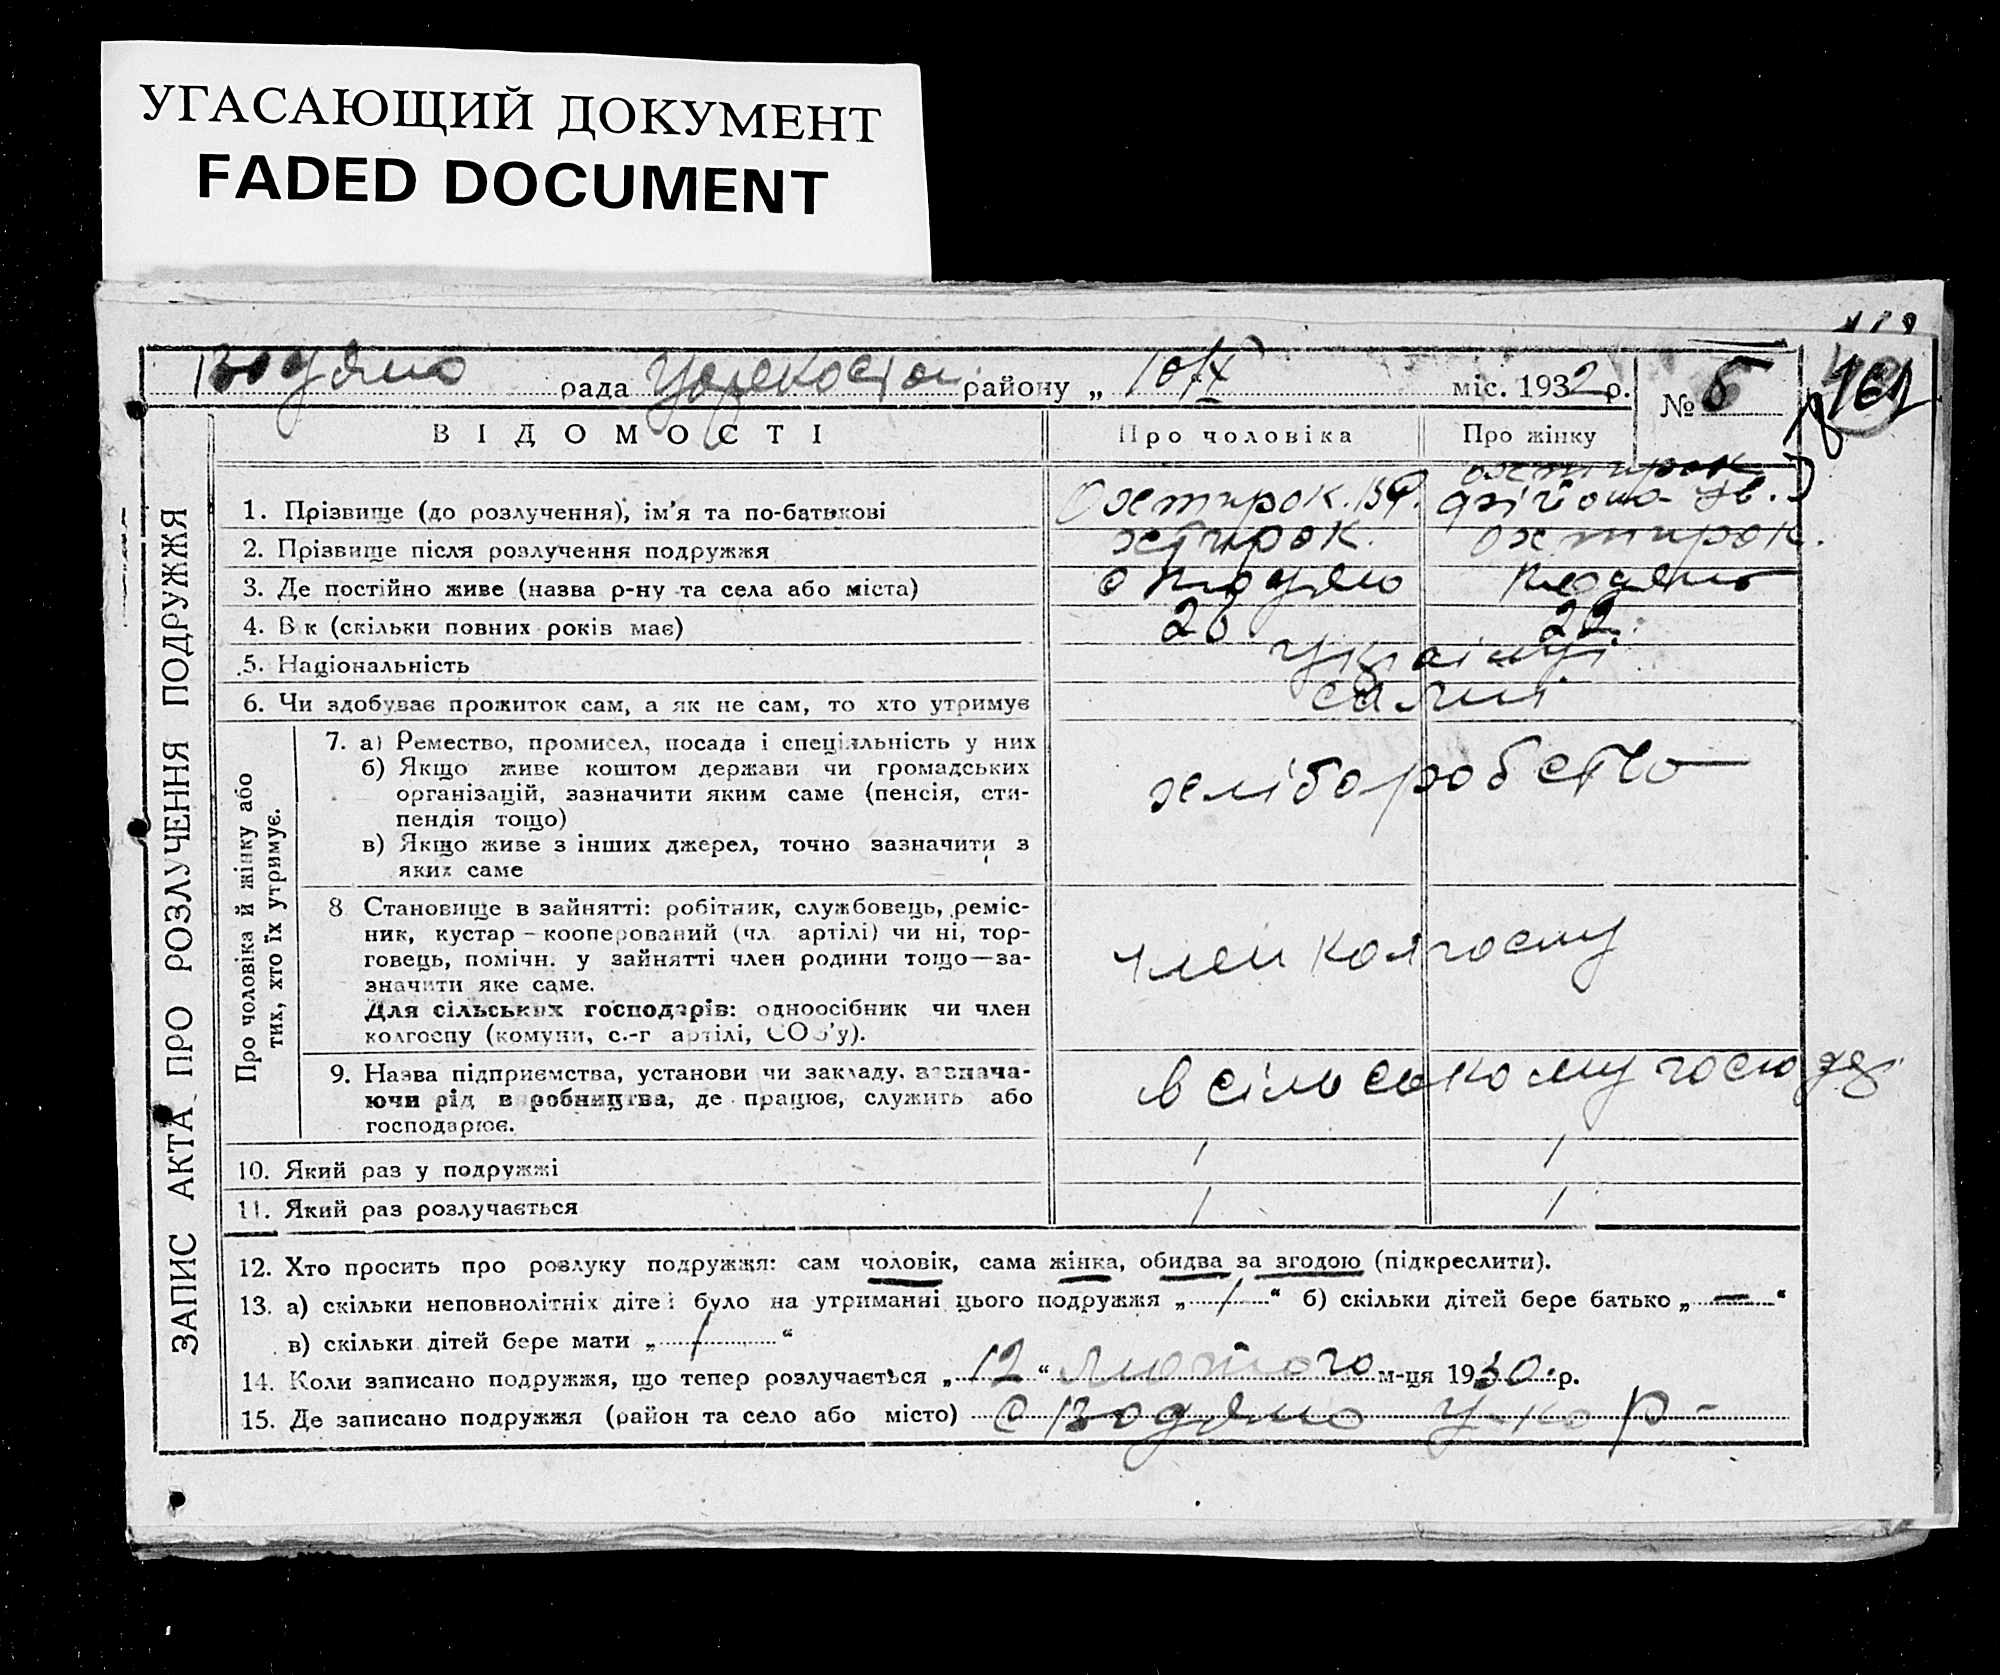 УГАСАЮЩИЙ ДОКУМЕНТ
FADED DOCUMENT
Водяно рада району „ 10/IX міс. 1932 р. № 5
161
ЗАПИС АКТА ПРО РОЗЛУЧЕННЯ ПОДРУЖЖЯ
ВІДОМОСТІ Про чоловіка Про жінку
охтирок
1. Прізвище (до розлучення), ім'я та по-батькові Охтирок.
2. Прізвище після розлучення подружжя хтирок. охтирок.
3. Де постійно живе (назва р-ну та села або міста) с Водяно Водяно
4. В к (скільки повних років має) 26 22
5. Національність українці
6. Чи здобуває прожиток сам, а як не сам, то хто утримує самі
Про чоловіка й жінку або тих, хто їх утримує.
7. а) Ремество, промисел, посада і спеціяльність у них
б) Якщо живе коштом держави чи громадських
організацій, зазначити яким саме (пенсія, сти-
пендія тощо)
в) Якщо живе з інших джерел, точно зазначити з
яких саме
хліборобство
8 Становище в зайнятті: робітник, службовець, реміс-
ник, кустар – кооперований (чл. артілі) чи ні, тор-
говець, помічн. у зайнятті член родини тощо—за-
значити яке саме.
Для сільських господарів: одноосібник чи член
колгоспу (комуни, с.-г артілі, СОЗ'у).
член колгоспу
9. Назва підприємства, установи чи закладу, зазнача-
ючи рід виробництва, де працює, служить або
господарює.
в сільському
10. Який раз у подружжі 1 1
11. Який раз розлучається 1 1
12. Хто просить про розлуку подружжя: сам чоловік, сама жінка, обидва за згодою (підкреслити).
13. а) скільки неповнолітніх дітей було на утриманні цього подружжя „ 1 “ б) скільки дітей бере батько „ — “
в) скільки дітей бере мати „ 1 “
14. Коли записано подружжя, що тепер розлучається „ 12 “ лютого м-ця 1930 р.
15. Де записано подружжя (район та село або місто) с Водяно